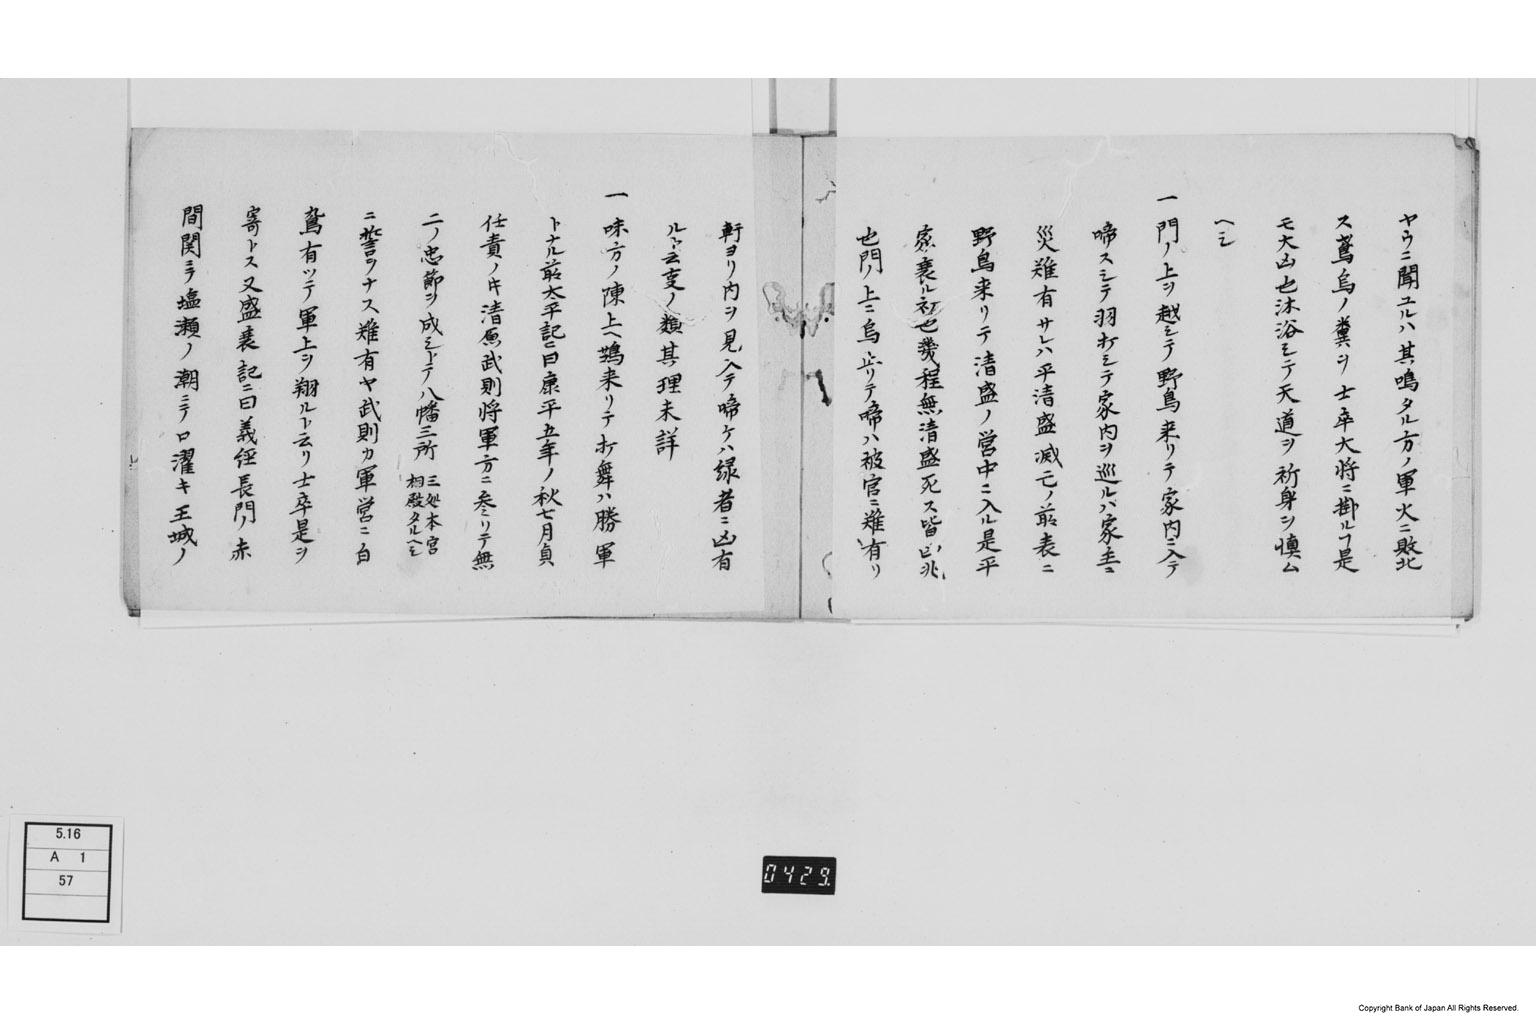 ヤウニ聞ユルハ其鳴タル方ノ軍火ニ敗北
ス鳶烏ノ糞ヲ士卒大将ニ掛ルヿ是
モ大凶也沐浴シテ天道ヲ祈身ヲ慎ム
ヘシ
一門ノ上ヲ越シテ野鳥来リテ家内ニ入テ
啼スシテ羽打シテ家内ヲ巡ルバ家主ニ
災難有サレハ平清盛滅亡ノ前表ニ
野鳥来リテ清盛ノ営中ニ入ル是平
家衰ル初也幾程無清盛死ス皆凶兆
也門ノ上ニ烏止リテ啼ハ被官ニ難有リ
軒ヨリ内ヲ見入テ啼ケハ縁者ニ凶有
ルト云支ノ類其理未詳
一味方ノ陳上ヘ鵄来リテ打舞ハ勝軍
トナル前太平記ニ曰康平五年ノ秋七月貞
任責ノ時清原武則将軍方ニ参リテ無
二ノ忠節ヲ成シトテ八幡三所
三処本宮
相殿タルヘシ
ニ誓ヲナス難有ヤ武則カ軍営ニ白
鳶有ツテ軍上ヲ翔ルト云リ士卒是ヲ
寄トス又盛衰記ニ曰義経長門ノ赤
間関ニテ塩瀬ノ潮ニテ口濯キ王城ノ
5.16
A 1
57
0429.
Copyright Bank of Japan All Rights Reserved.